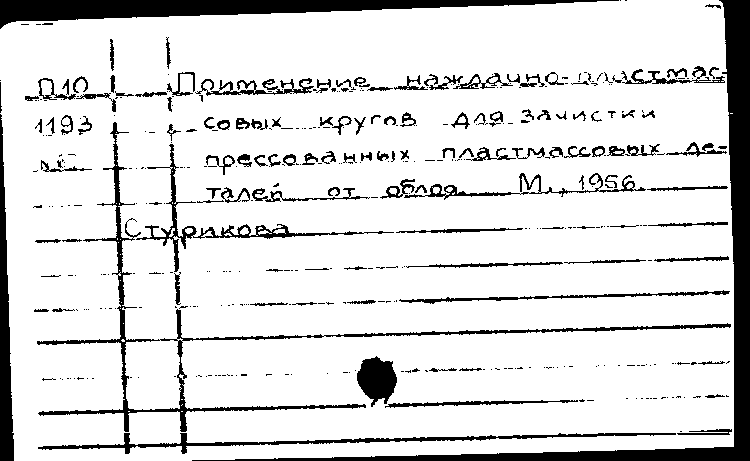 П10 Применение наждачно-пластмас-
1193 совых кругов для зачистки
прессованных пластмассовых де-
талей от облоя. М., 1956.
Стурикова